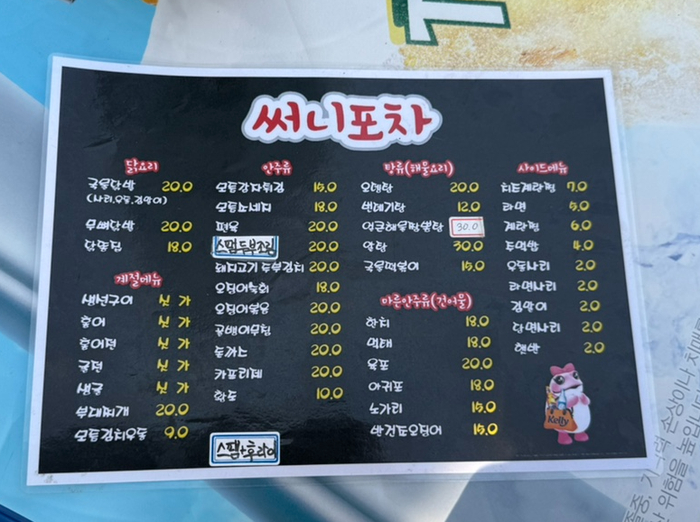 써니포차
닭요리
국물닭발 20.0
(사리,우동,김말이)
무뼈닭발 20.0
닭똥집 18.0
계절메뉴
생선구이 싯 가
홍어 싯 가
홍어전 싯 가
굴전 싯 가
생굴 싯 가
부대찌개 20.0
모듬김치우동 9.0
안주류
모듬감자튀김 15.0
모듬소세지 18.0
편육 20.0
스팸두부조림 20.0
돼지고기 두부김치 20.0
오징어숙회 18.0
오징어볶음 20.0
골뱅이무침 20.0
돈까스 20.0
카프리제 20.0
황도 10.0
스팸+후라이
탕류(해물요리)
오뎅탕 20.0
번데기탕 12.0
얼큰해물짬뽕탕 30.0
알탕 30.0
국물떡볶이 15.0
마른안주류(건어물)
한치 18.0
먹태 18.0
육포 20.0
아귀포 18.0
노가리 15.0
반건조오징어 15.0
사이드메뉴
치즈계란찜 7.0
라면 5.0
계란찜 6.0
주먹밥 4.0
우동사리 2.0
라면사리 2.0
김말이 2.0
당면사리 2.0
햇반 2.0
Kelly